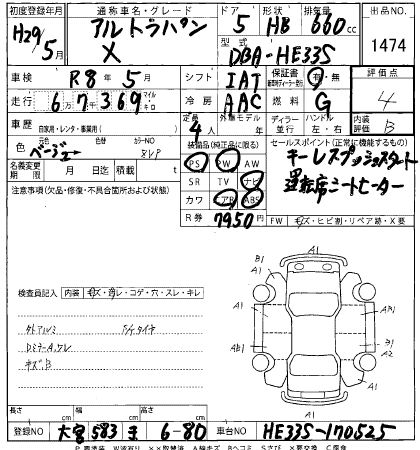 初度登録年月 通称車名・グレード ドア 形状 排気量 出品NO.
H29/5月 アルトラパン X 5 HB 660cc 1474
型式 DBA-HE33S
車検 R8年5月 シフト IAT 保証書 有・無 評価点 4
走行 6万7369 マイル キロ 冷房 AAC 燃料 G
車歴 自家用・レンタ・事業用( ) 定員 4人 外車モデル 年 ディーラー 並行 ハンドル 左・右 内装評価 B
色 元色 ベージュ 色替 カラーNO
装備品(純正品に限る) セールスポイント(正常に機能するもの)
名義変更期限 月 日迄 積載 t
PS PW AW キーレスプッシュスタート
注意事項(欠品・修復・不具合箇所および状態) SR TV ナビ 運転席シートヒーター
カワ エアB ABS
R券 7950円 FW キズ・ヒビ割・リペア跡・X要
A1
B1
A1
A1
検査員記入 内装 キズ・汚レ・コゲ・穴・スレ・キレ
A1
外アルミ
AB1 B1
ドミラーA,ケレ A2
キズ、B
A1
A1
長さ cm 幅 cm 高さ cm
登録NO 大宮 583 6-80 車台NO HE33S-170525